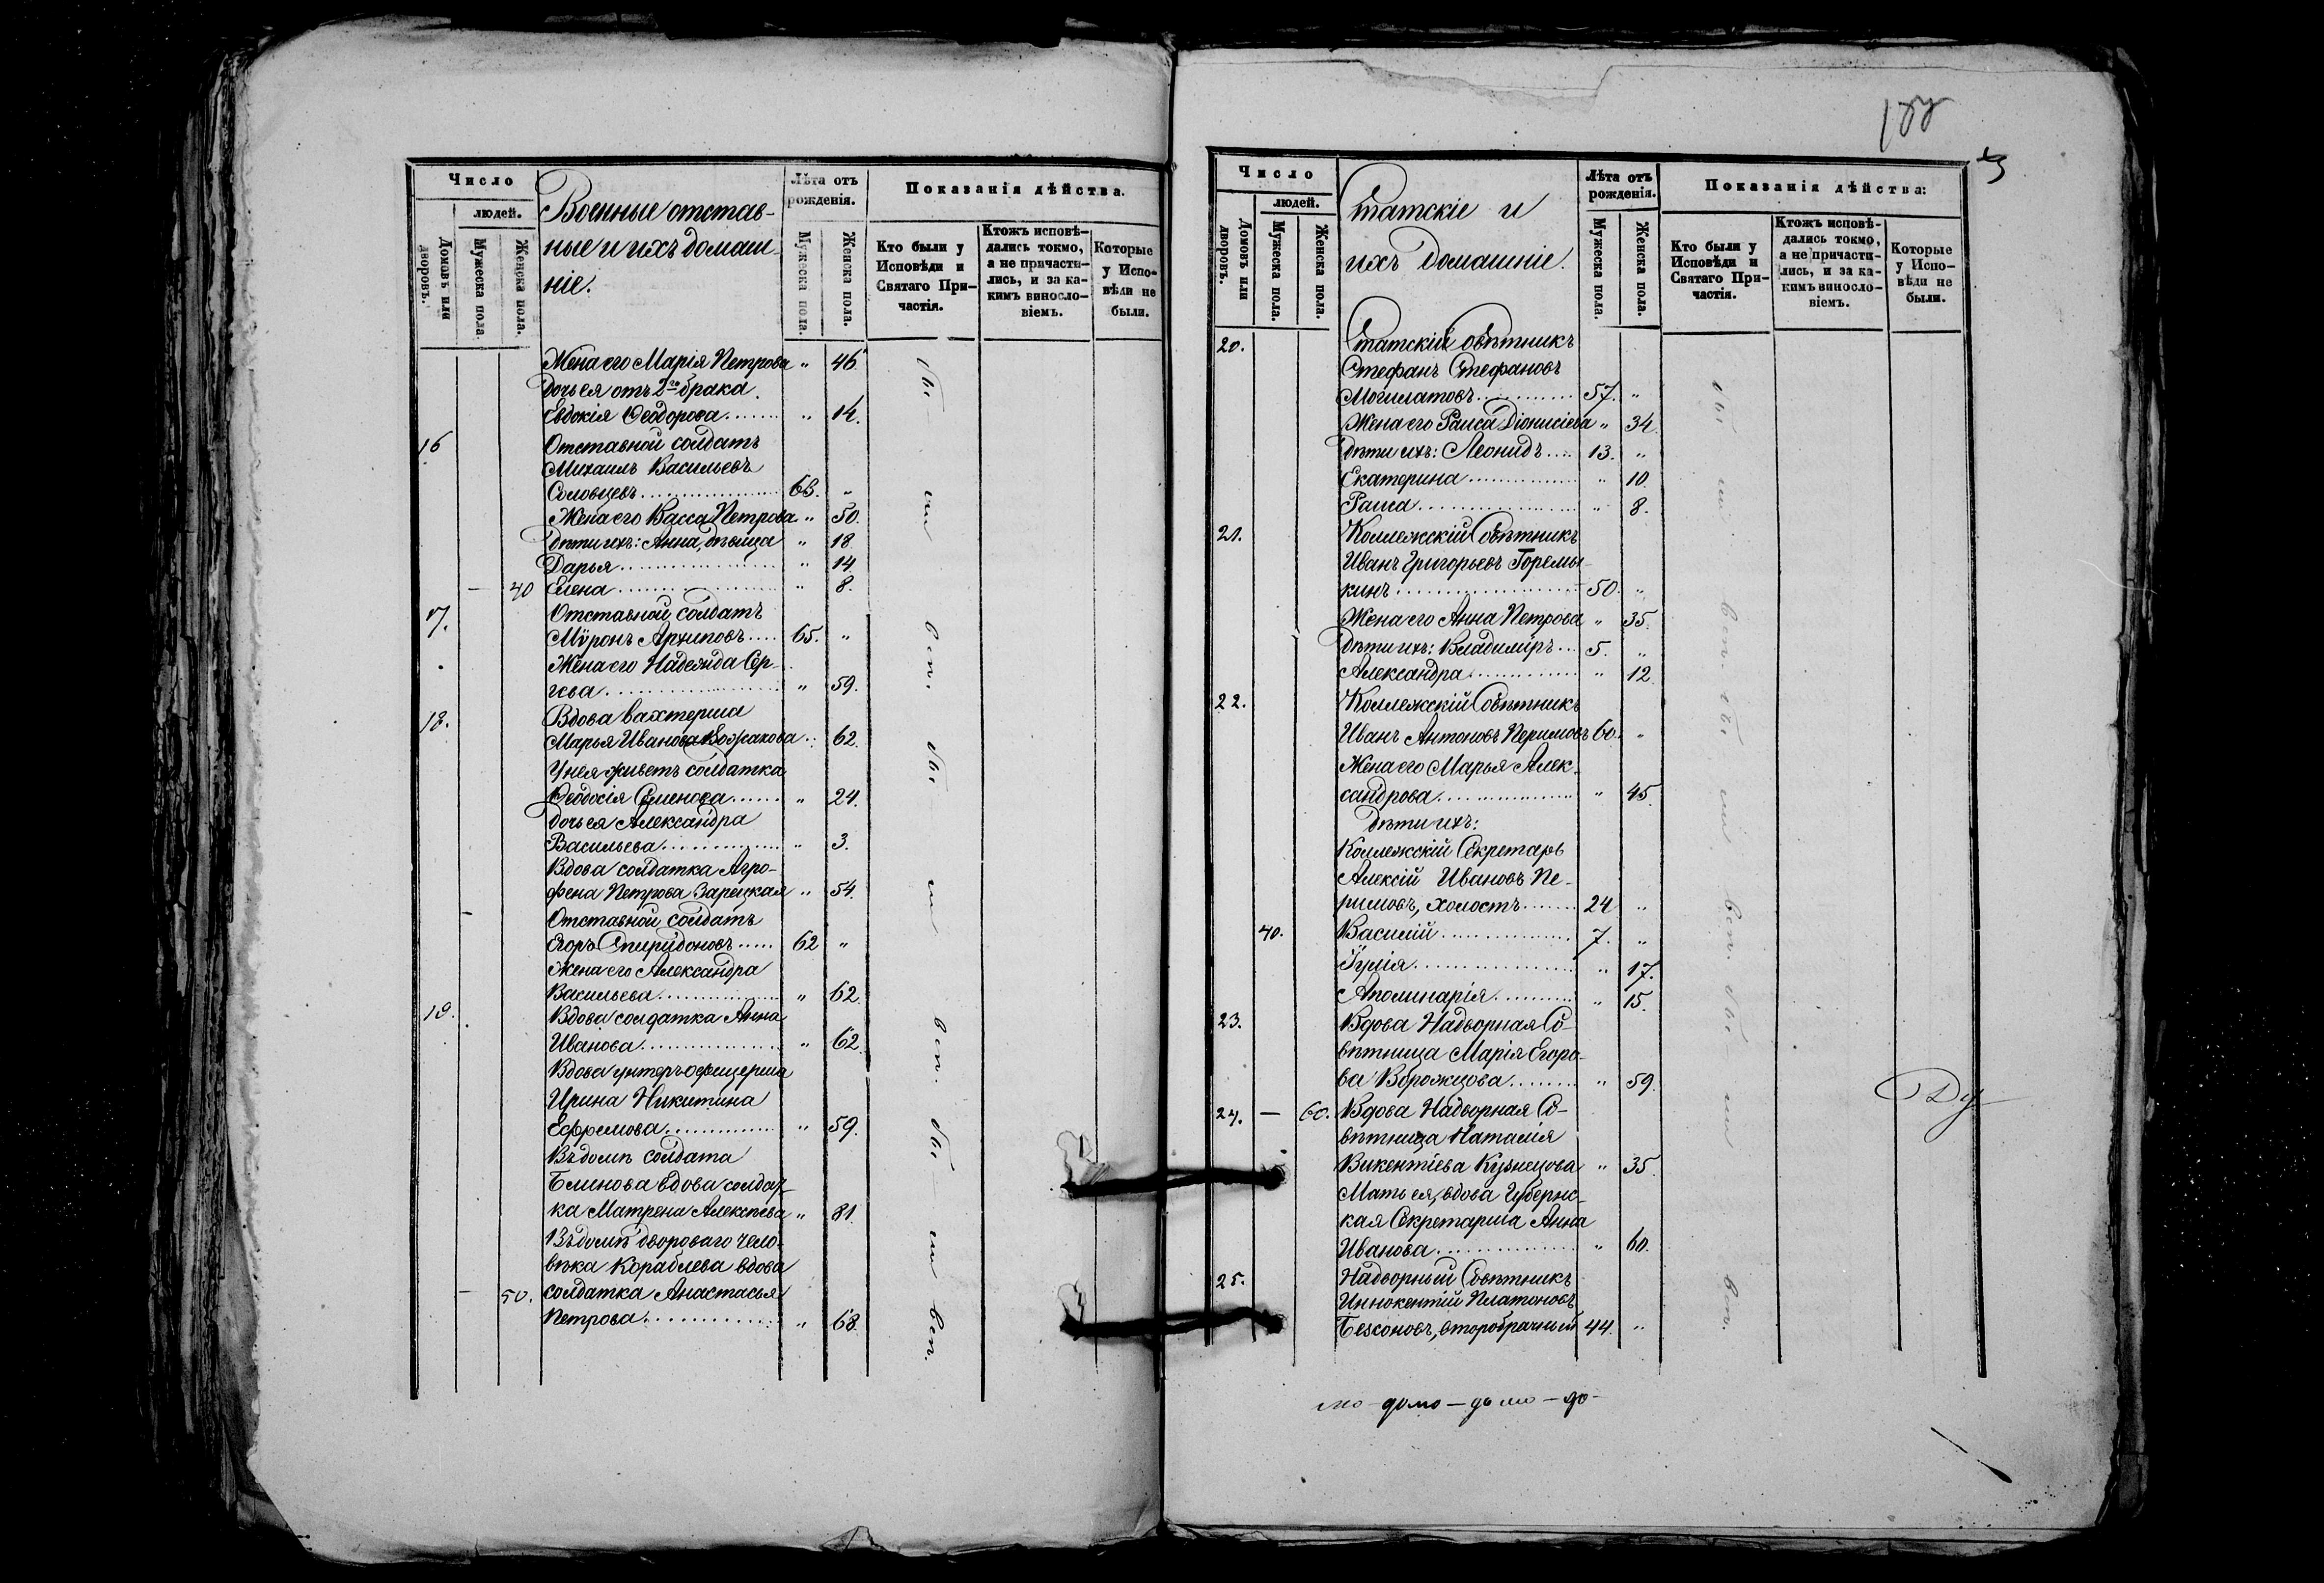 Число
людей.
Домовъ или дворовъ.
Мужеска пола.
Женска пола.
Военные отстав-
ные и ихъ домаш-
ніе.
Лѣта отъ рожденія.
Мужеска пола.
Женска пола.
Показанія дѣйства.
Кто были у Исповѣди и Святаго При-частія.
Ктожъ исповѣ-дались токмо, а не причасти-лись, и за ка-кимъ виносло-віемъ.
Которые у Испо-вѣди не были.
Жена его Марія Петрова " 46.
Дочь ея отъ 2го брака
Евдокія Ѳеодорова " 14.
16 Отставной солдатъ
Михаилъ Васильевъ
Соловцевъ 63. "
Жена его Васса Петрова " 50.
Дѣти ихъ: Анна, дѣвица " 18
Дарья " 14
— 40 Елена " 8.
17. Отставной солдатъ
Мѵронъ Архиповъ 65. "
Жена его Надежда Сер-
гѣева " 59.
18. Вдова вахтерша
Марья Иванова Кожакова 62.
У нея живетъ солдатка
Ѳеодосія Семенова " 24.
Дочь ея Александра
Васильева " 3.
Вдова солдатка Агро-
фена Петрова Зарецкая " 54.
— Отставной солдатъ
Егоръ Спиридоновъ 62 "
Жена его Александра
Васильева " 62.
19. Вдова солдатка Анна
Иванова " 62.
Вдова унтеръофицерша
Ирина Никитина
Ефремова " 59.
Въ домѣ солдата
Блинова вдова солдат-
ка Матрена Алексѣева " 81.
Въ домѣ двороваго чело-
вѣка Кораблева вдова
— 50. солдатка Анастасья
Петрова " 68.
бы — ли
вси.
бы — ли
вси.
бы — ли
вси.
188
Число
людей.
Домовъ или дворовъ.
Мужеска пола.
Женска пола.
Статскіе и
ихъ домашніе.
Лѣта отъ рожденія.
Мужеска пола.
Женска пола.
Показанія дѣйства:
Кто были у Исповѣди и Святаго При-частія.
Ктожъ исповѣ-дались токмо, а не причасти-лись, и за ка-кимъ винословіемъ.
Которые у Испо-вѣди не были.
20. Статскій Совѣтникъ
Стефанъ Стефановъ
Могилатовъ 57. "
Жена его Раиса Діонисіева " 34.
Дѣти ихъ: Леонидъ 13. "
Екатерина " 10.
Раиса " 8.
21. Коллежскій Совѣтникъ
Иванъ Григорьевъ Горемы-
кинъ 50. "
Жена его Анна Петрова " 35.
Дѣти ихъ: Владиміръ 5. "
Александра " 12.
22. Коллежскій Совѣтникъ
Иванъ Антоновъ Перимовъ 60. "
Жена его Марья Алек-
сандрова " 45.
Дѣти ихъ:
Коллежскій Секретарь
Алексій Ивановъ Пе-
римовъ, холостъ 24 "
40. Василій 7. "
Іулія " 17.
Аполинарія " 15.
23. Вдова Надворная Со-
вѣтница Марія Егоро-
ва Ворожцова " 59.
24. — 60. Вдова Надворная Со-
вѣтница Наталія
Викентіева Кузнецова " 35.
Мать ея, вдова Губернс-
кая Секретарша Анна
Иванова " 60.
25. Надворный Совѣтникъ
Иннокентій Платоновъ
Безсоновъ, второбрачный 44. "
бы — ли
вси.
бы — ли
вси.
бы — ли
вси.